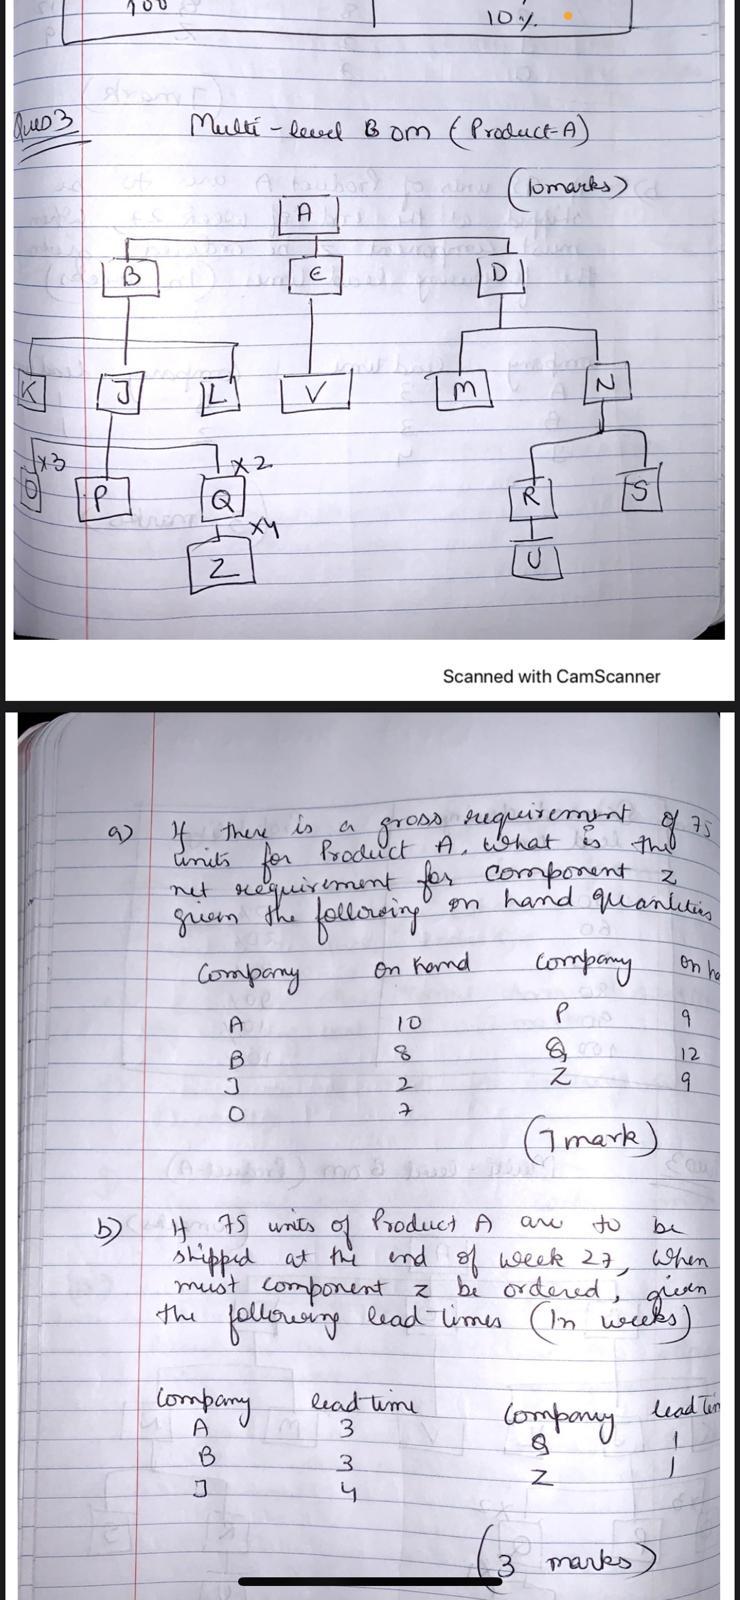 100
10%
Ques 3
Multi-level Bom (Product-A)
(10marks)
A
B E D
K J L V M N
x3 x2
O P Q R S
x4
Z U
Scanned with CamScanner
a) If there is a gross requirement of 75
units for Product A. What is the
net requirement for component Z
given the following on hand quantities
Company on hand Company on ha
A 10 P 9
B 8 Q 12
J 2 Z 9
O 7
(7 mark)
b) If 75 units of Product A are to be
shipped at the end of week 27, when
must component Z be ordered, given
the following lead-times (In weeks)
Company lead time Company lead Tim
A 3 Q 1
B 3 Z 1
J 4
(3 marks)